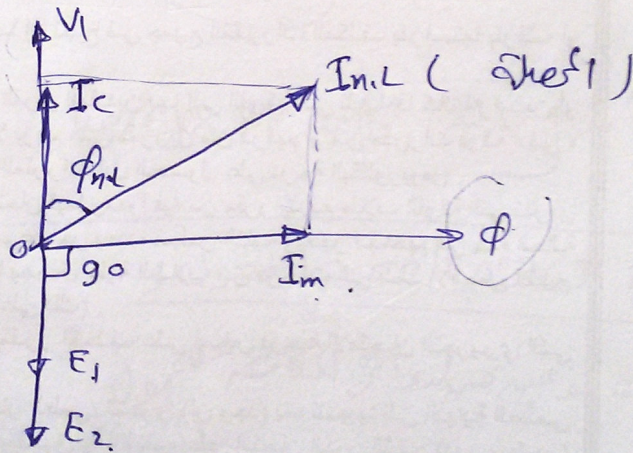 V1
Ic
In.L (
)
φn.L
O
90
Im.
φ
E1
E2.